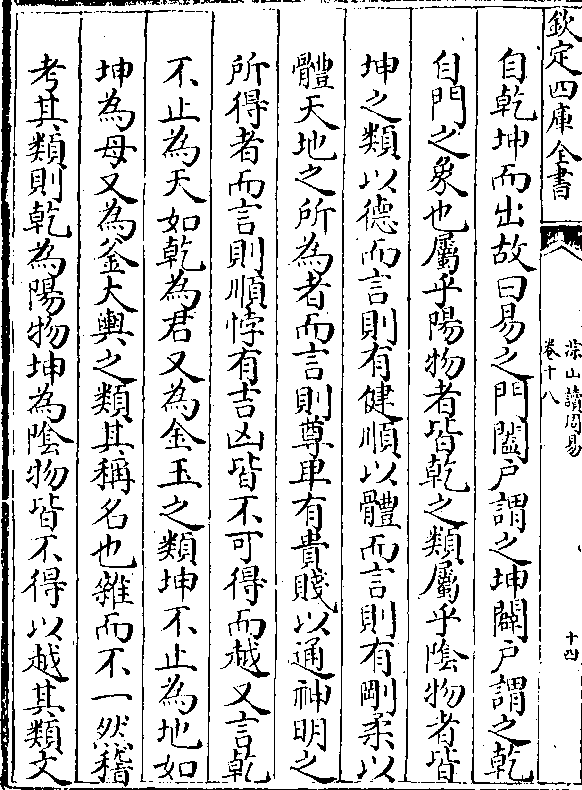 欽定四庫全書
淙山讀周易
卷十八
十四
自乾坤而出故曰易之門闔户謂之坤闢户謂之乾
自門之象也屬乎陽物者皆乾之類屬乎陰物者皆
坤之類以德而言則有健順以體而言則有剛柔以
體天地之所為者而言則尊卑有貴賤以通神明之
所得者而言則順悖有吉凶皆不可得而越又言乾
不止為天如乾為君又為金玉之類坤不止為地如
坤為母又為釡大輿之類其稱名也雜而不一然稽
考其類則乾為陽物坤為隂物皆不得以越其類文